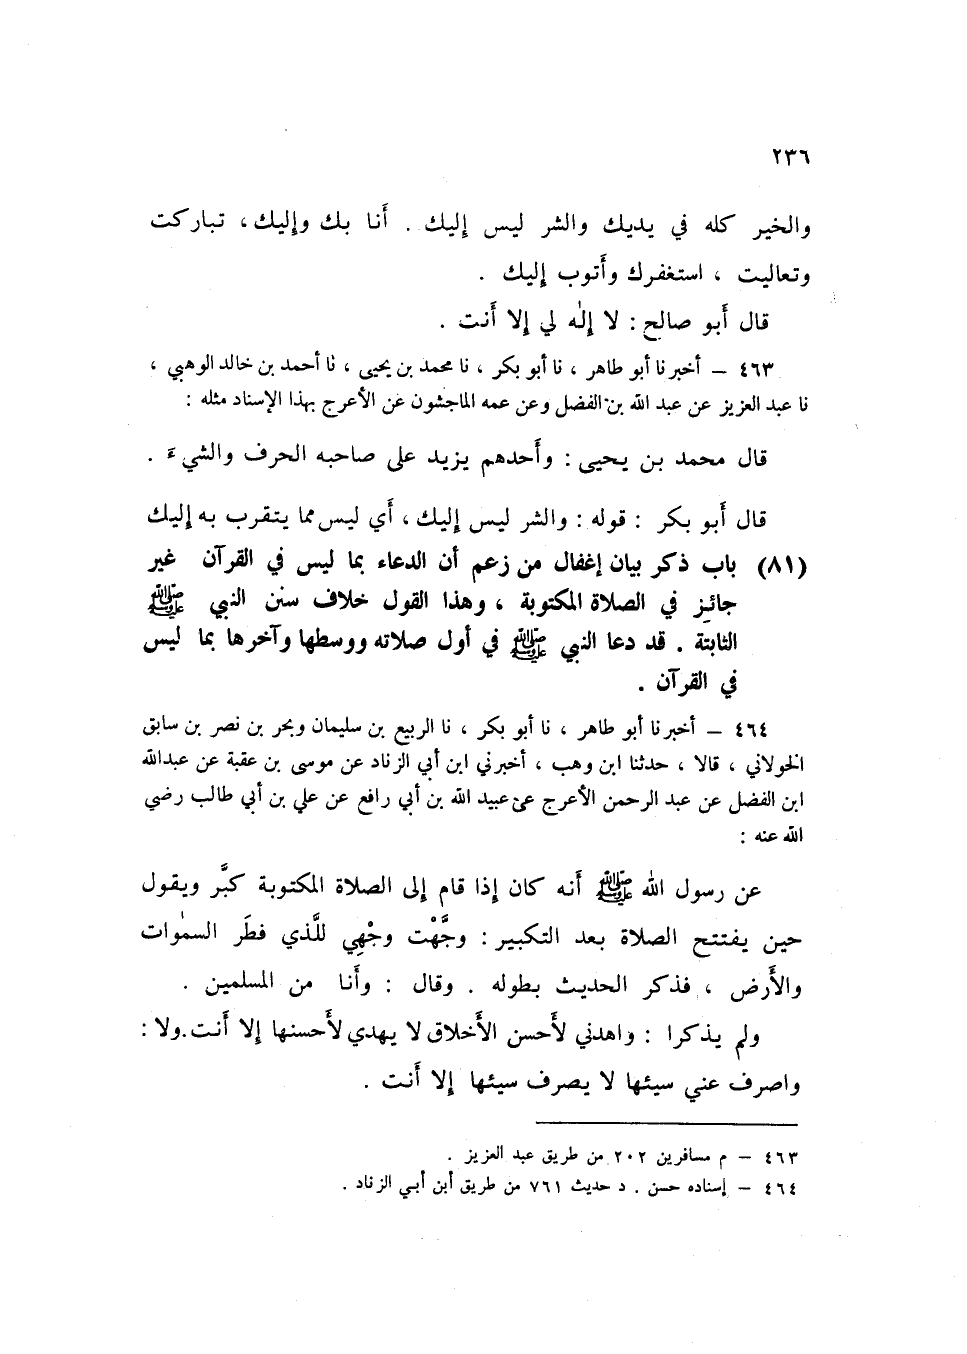 ٢٣٦
والخير كله في يديك والشر ليس إليك . أنا بك وإليك ، تباركت
وتعاليت ، استغفرك وأتوب إليك .
قال أبو صالح : لا إلٰه لي إلا أنت .
٤٦٣ – أخبرنا أبو طاهر ، نا أبو بكر ، نا محمد بن يحيى ، نا أحمد بن خالد الوهبي ،
نا عبد العزيز عن عبد الله بن الفضل وعن عمه الماجشون عن الأعرج بهذا الإسناد مثله :
قال محمد بن يحيى : وأحدهم يزيد على صاحبه الحرف والشيء .
قال أبو بكر : قوله : والشر ليس إليك ، أي ليس مما يتقرب به إليك
(٨١) باب ذكر بيان إغفال من زعم أن الدعاء بما ليس في القرآن غير
جائز في الصلاة المكتوبة ، وهذا القول خلاف سنن النبي ﷺ
الثابتة . قد دعا النبي ﷺ في أول صلاته ووسطها وآخرها بما ليس
في القرآن .
٤٦٤ – أخبرنا أبو طاهر ، نا أبو بكر ، نا الربيع بن سليمان وبحر بن نصر بن سابق
الخولاني ، قالا ، حدثنا ابن وهب ، أخبرني ابن أبي الزناد عن موسى بن عقبة عن عبدالله
ابن الفضل عن عبد الرحمن الأعرج عن عبيد الله بن أبي رافع عن علي بن أبي طالب رضي
الله عنه :
عن رسول الله ﷺ أنه كان إذا قام إلى الصلاة المكتوبة كبَّر ويقول
حين يفتتح الصلاة بعد التكبير : وجَّهْت وجْهِي للَّذي فطَر السمٰوات
والأَرض ، فذكر الحديث بطوله . وقال : وأنا من المسلمين .
ولم يذكرا : واهدني لأَحسن الأَخلاق لا يهدي لأَحسنها إلا أنت . ولا :
واصرف عني سيئها لا يصرف سيئها إلا أنت .
٤٦٣ – م مسافرين ٢٠٢ من طريق عبد العزيز .
٤٦٤ – إسناده حسن . د حديث ٧٦١ من طريق ابن أبي الزناد .